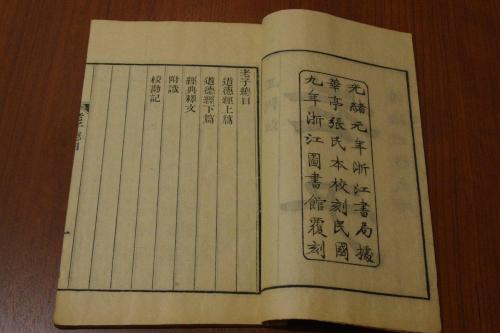 光緒元年浙江書局據
華亭張氏本校刻民國
九年浙江圖書館覆刻
老子總目
道德經上篇
道德經下篇
經典釋文
附識
校勘記